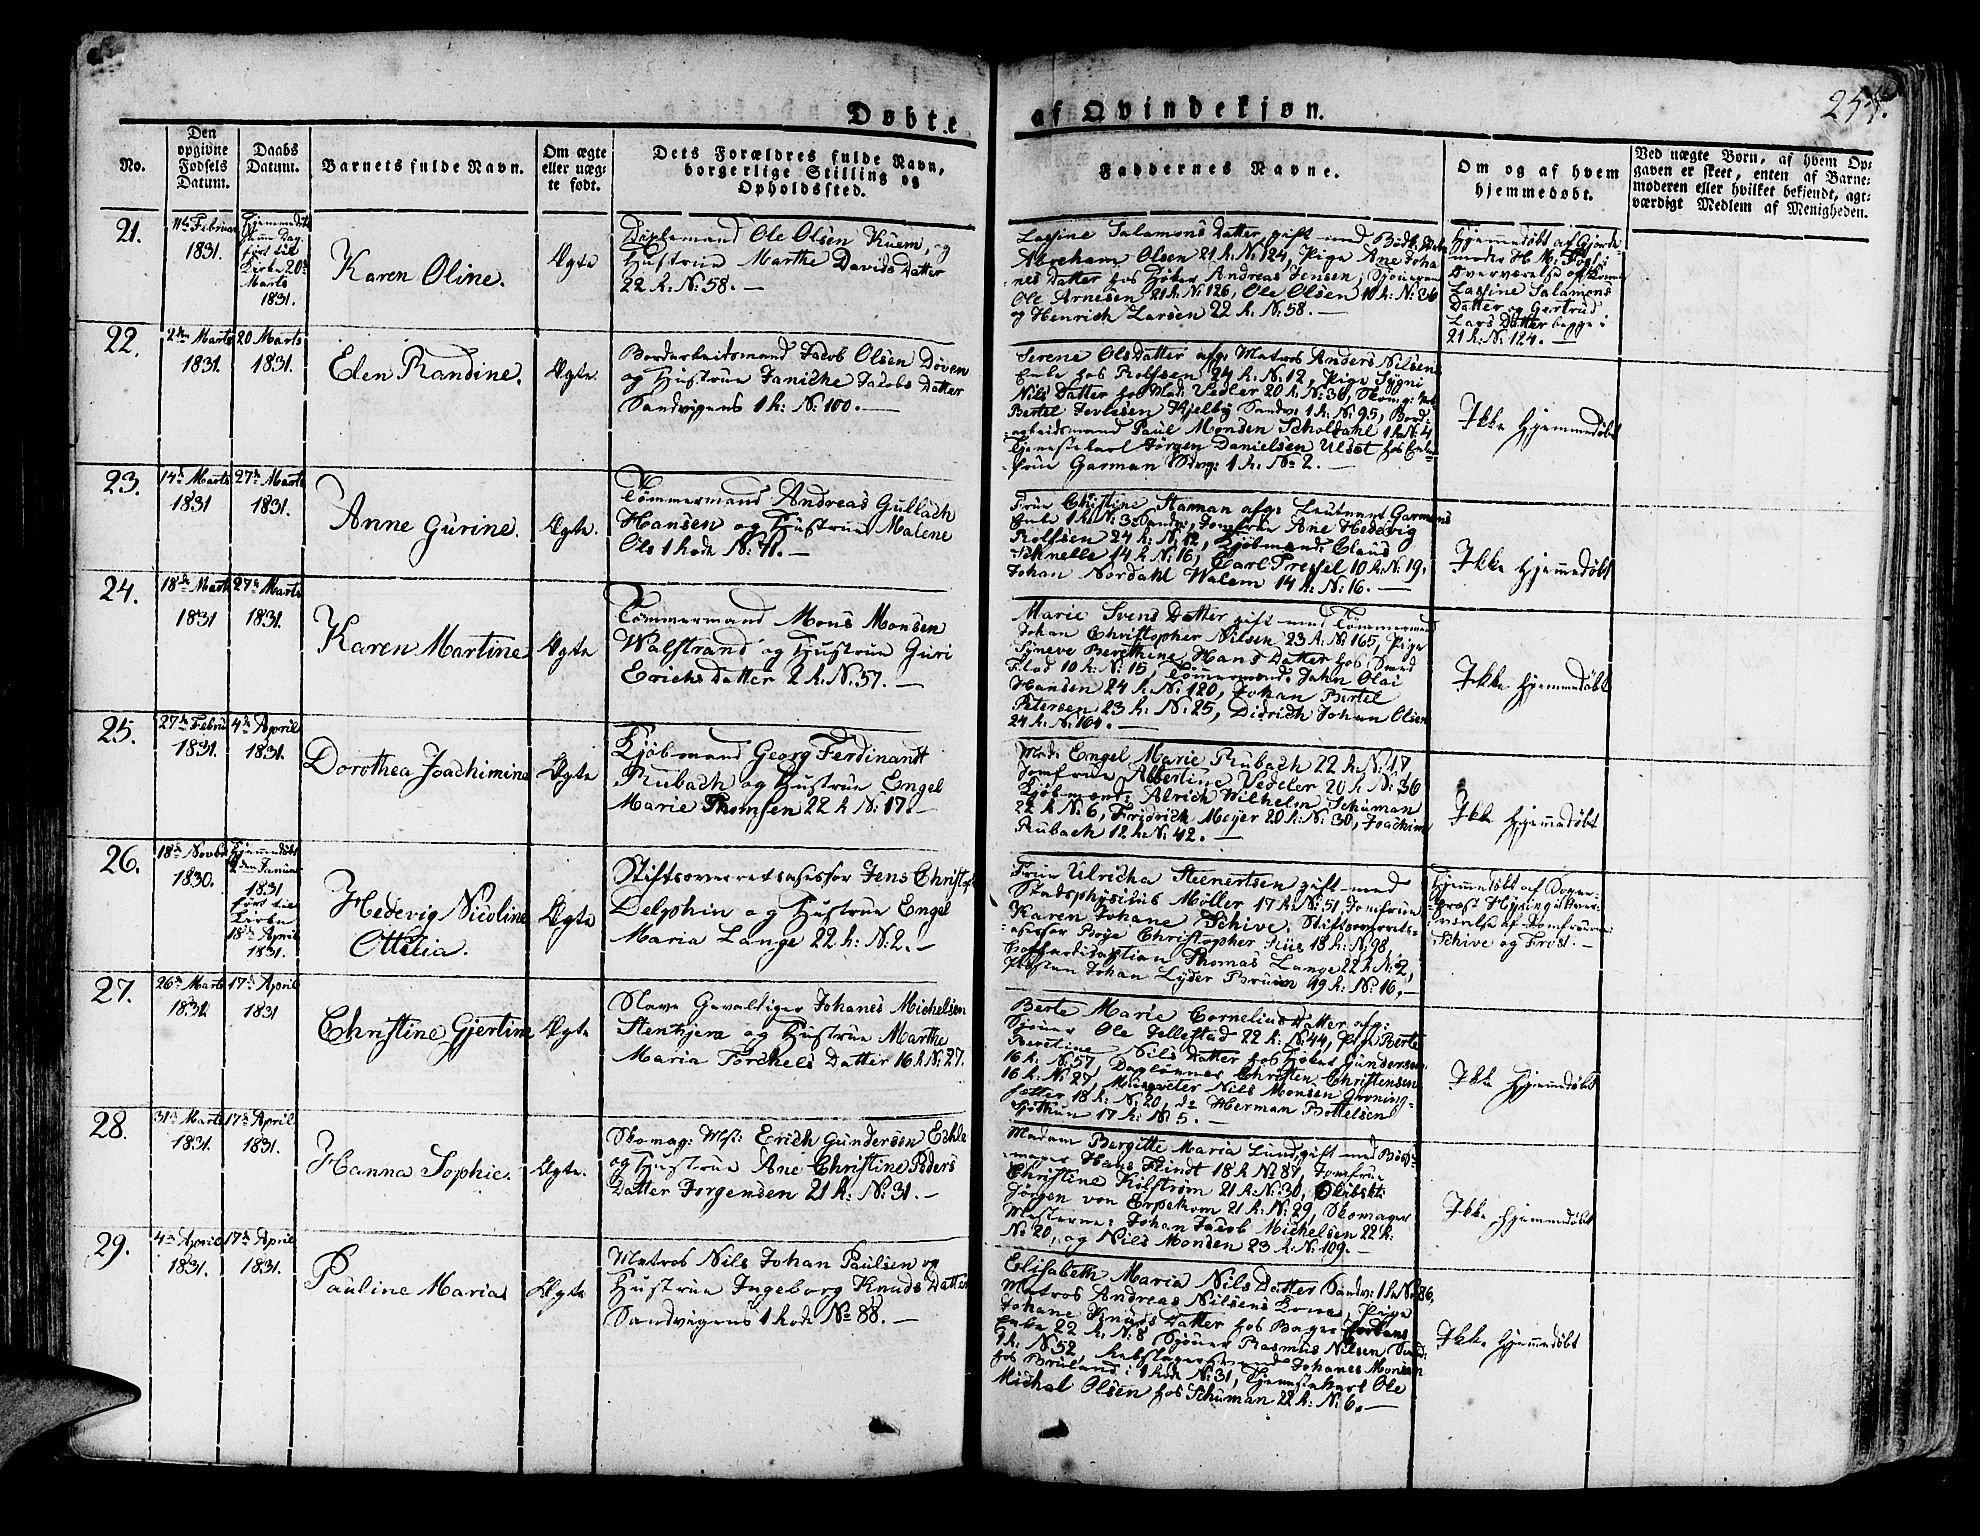 Døbte af Qvindekjøn.
254.
No.
Den opgivne Fødsels Datum.
Daabs Datum.
Barnets fulde Navn.
Om ægte eller uægte født.
Dets Forældres fulde Navn, borgerlige Stilling og Opholdssted.
Faddernes Navne.
Om og af hvem hjemmedøbt.
Ved uægte Børn, af hvem Opgaven er skeet, enten af Barnemoderen eller hvilket bekjendt, agtværdigt Medlem af Menigheden.
21.
11te Februar
1831.
Hjemmedøbt
samme Dag
ført til
Kirke 20de
Marts
1831.
Karen Oline.
Ægte
Ole Olsen Kuem, og
Hustrue Marthe Davids Datter
22 R. N: 58. —
Lassine Salamons Datter gift med
Abraham Olsen 21 R. N: 124, Pige Ane Joha
nes Datter hos Andreas Jensen,
Ole Arnesen 21 R. N: 126, Ole Olsen 10 R. N: 36
og Henrich Larsen 22 R. N: 58. —
Hjemmedøbt af Gjorde
moder H. M. Fogh i
Overværelse af Konen
Lassine Salamons
Datter og Gertrud
Lars Datter begge i
21 R. N: 124.
22.
2den Marts
1831.
20 Marts
1831.
Elen Randine.
Ægte.
Bordarbeidsmand Jacob Olsen Døven
og Hustrue Janiche Jacobs Datter
Sandvigens 1 R: N: 100. —
Serene Ols Datter afg: Matros Anders Nilsens
Enke hos Rolfsen 24 R. N: 12, Pige Sygni
Nils Datter hos Mad: Vedler 20 R. N: 36,
Bertel Kjelby Sandv: 1 R. N: 95, Bord
arbeidsmand Paul Monsen Scholdahl 1 R. N: 4
Tjenestekarl Jørgen Danielsen Ulset hos
frue Garman Sdvg: 1 R: No 2. —
Ikke Hjemmedøbt
23.
14de Marts
1831
27de Marts
1831.
Anne Gurine.
Ægte.
Tømmermand Andreas Gullach
Hansen og Hustrue Malene
Ols 1 Rode N: 71. —
Frue Christine Staman afg: Leutenant Garmans
Enke 1 R. N: 3 Sandv:, Jomfrue Ane Hedevig
Rolfsen 24 R: N: 12, Kjøbmænd: Claus
Schnelle 14 R. N: 16, Carl Tressel 10 R: N: 19,
Johan Nordahl Walem 14 R: N: 16. —
Ikke Hjemmedøbt
24.
18de Marts
1831
27de Marts
1831.
Karen Martine
Ægte
Tømmermand Mons Monsen
Walstrand og Hustrue Guri
Erichs Datter 2 R. N: 57. —
Marie Svens Datter gift med Tømmermand
Johan Christopher Nilsen 23 R. N: 165, Pige
Syneve Berethine Hans Datter hos Smed
Flod 10 R: N: 15, Tømmermænd: Jahn Olai
Hansen 24 R. N: 120, Johan Bertel
Petersen 23 R. N: 25, Didrich Johan Olsen
24 R. N: 104. —
Ikke Hjemmedøbt
25.
27de Febru
1831.
4de April
1831.
Dorothea Joachimine
Ægte
Kjøbmand Georg Ferdinandt
Rubach og Hustrue Engel
Marie Thomsen 22 R N: 17. —
Mad: Engel Marie Rubach 22 R. N: 17
Jomfrue Albertine Vedeler 20 R. N: 36
Kjøbmænd: Alrich Wilhelm Schuman
22 R. N: 6, Fridrich Meyer 20 R: N: 30, Joachim
Rubach 12 R. N: 42. —
Ikke Hjemmedøbt
26.
18de Novbr
1830.
Hjemmedøbt
2den Januar
1831
ført til
Kirke
18de April
1831.
Hedevig Nicoline
Ottelia.
Ægte
Stiftsoverretsassessor Jens Christofr
Delphin og Hustrue Engel
Maria Lange 22 R: N: 2. —
Frue Ulricha Steenertsen gift med
Stadsphysicus Møller 17 R: N: 51 Jomfrue
Karen Johane Schive, Stiftsoverets-
assessor Boye Christopher Riis 18 R: N: 98,
Coffardicaptian Thomas Lange 22 R. N: 2,
Johan Lyder Bruun 19 R: N: 16. —
Hjemmedøbt af Sogne-
præst Hysing i Over-
værelse af Jomfruerne
Schive og Frost. —
27.
26de Marts
1831.
17de April
1831
Christine Gjertine
Ægte
Slave Gevaltiger Johanes Michelsen
Stenkjere og Hustrue Marthe
Maria Torchels Datter 16 R. N: 27.
Berte Marie Cornelius Datter afg:
Ole Jellestad 22 R: N: 44, Pige Berte
Beretine Nils Datter hos Gundersen
16 R: N: 57, Christen Christensen
16 R: N: 27, Nils Monsen Groning-
sætter 18 R: N: 20, do Herman Bottelsen
17 R: N: 5. —
Ikke Hjemmedøbt
28.
31de Marts
1831.
17de April
1831.
Hanna Sophie.
Ægte.
Skomag: Mst: Erich Gundersen Echle
og Hustrue Ane Christine Peders
Datter Jorgensen 21 R: N: 31. —
Madam Bergitte Maria Lund, gift med
Hans Flindt 18 R No 87, Jomfrue
Christine Kilstrøm 21 R: N: 30,
Jørgen von Erpekom 21 R: N: 29, Skomager
Mesterne: Johan Jacob Michelsen 22 R:
No 20, og Nils Monsen 23 R. N: 109. —
Ikke Hjemmedøbt
29.
4de April
1831.
17de April
1831.
Pauline Maria
Ægte
Matros Nils Johan Paulsen og
Hustrue Ingeborg Knuds Datter
Sandvigens 1 Rode No 88. —
Elisabeth Maria Nils Datter Sandv: 1 R. No 86,
Matros Andreas Nilsens Kone, Pige
Johane Knuds Datter hos Bager
Enke 22 R. N: 8, Rasmus Nilsen Sand:
1 R: N: 52, Johanes Monsen
hos Bruland i 1 Rode N: 31, Tjenestekarl Ole
Michel Olsen hos Schuman 22 R: N: 6. —
Ikke Hjemmedøbt